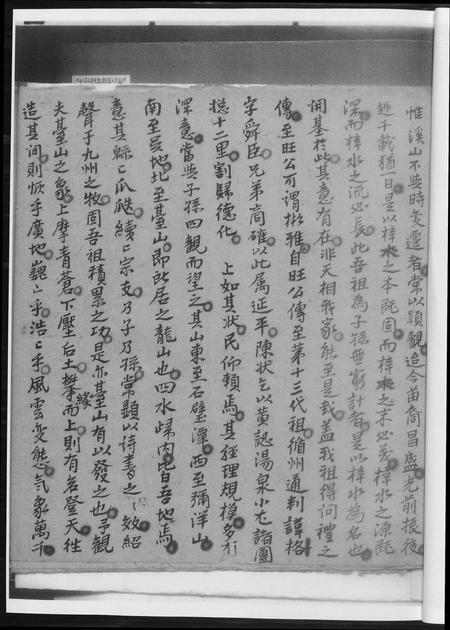 惟溪山不與時变遷者常以顯觀迨今苗裔昌盛光前裕後
越千載猶一日是以梓木之本既固而梓木之末必茂梓水之源既
深而梓水之流必長此吾祖為子孫無窮計者是以梓水為名也
開基於此其意有在非天相我家能至是哉盖我祖得问禮之
傳至旺公可谓彬雅自旺公傳至第十三代祖循州通判諱格
字舜臣兄弟商確以此属延平陳状乞以黄認湯泉小尤諸團
揔十二里割歸德化 上如其状民仰賴焉其經理規模多有
深意當與子孫四觀而望之其山東至石壁潭西至彌洋山
南至吴地北至臺山即所居之龍山也四水歸内皆吾地焉
意其緜〻瓜瓞續〻宗支乃子乃孫常顯以诗書之〻效紹
聲于九州之牧固吾祖積累之功是亦臺山有以發之也予觀
夫臺山之象上摩青蒼下壓后土攀缘而上則有名登天徃
造其间則恢乎廣地巍〻乎浩〻乎風雲变態气象萬千